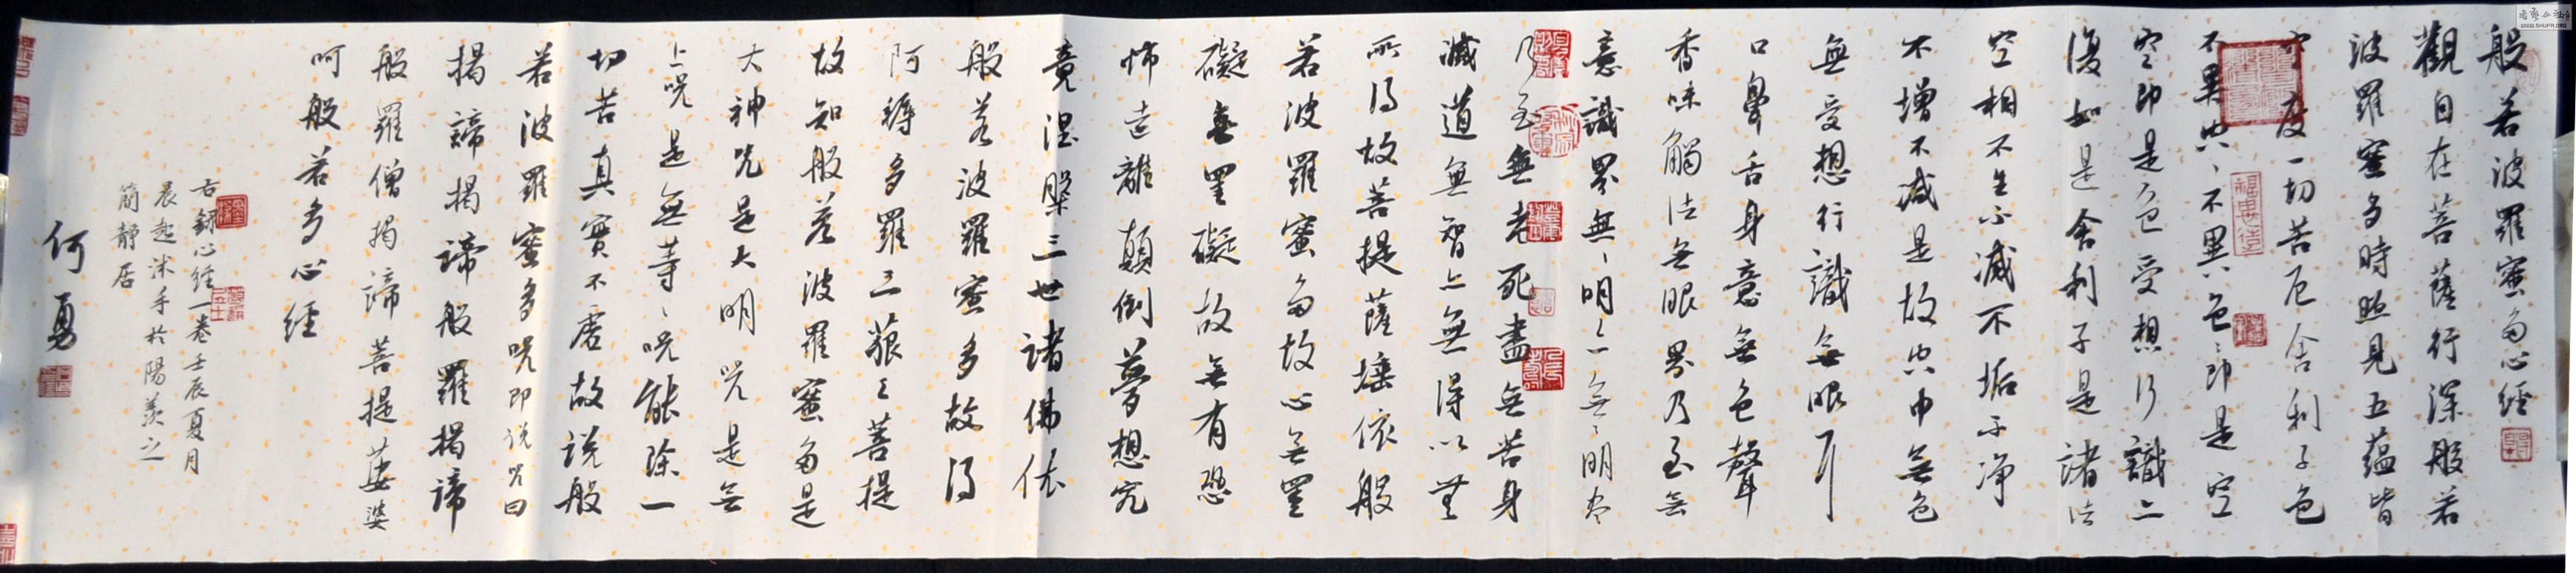 般若波羅蜜多心經
觀自在菩薩行深般若
波羅蜜多時照見五蘊皆
空度一切苦厄舍利子色
不異空、不異色、即是空
空即是色受想行識亦
復如是舍利子是諸法
空相不生不滅不垢不淨
不增不減是故空中無色
無受想行識無眼耳
口鼻舌身意無色聲
香味觸法無眼界乃至無
意識界無、明亦無、明盡
乃至無老死盡無苦身
滅道無智亦無得以無
所得故菩提薩埵依般
若波羅蜜多故心無罣
礙無罣礙故無有恐
怖遠離顛倒夢想究
竟涅槃三世諸佛依
般若波羅蜜多故得
阿耨多羅三藐三菩提
故知般若波羅蜜多是
大神咒是大明咒是無
上咒是無等、咒能除一
切苦真實不虛故說般
若波羅蜜多咒即說咒曰
揭諦揭諦般羅揭諦
般羅僧揭諦菩提薩婆
呵般若多心經
右錄心經一卷壬辰夏月
晨起沐手於陽羨之
簡靜居
何勇
WWW.SHUFA.ORG